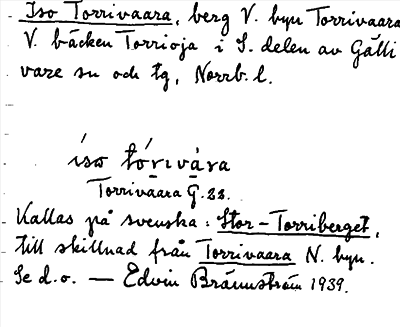 Iso Torrivaara, berg V. byn Torrivaara
V. bäcken Torrioja i S. delen av Gälli
vare sn och tg, Norrb. l.
íso tórivára
Torrivaara G. 28.
Kallas på svenska: Stor-Torriberget,
till skillnad från Torrivaara N. byn.
Se d.o. — Edvin Brännström 1939.